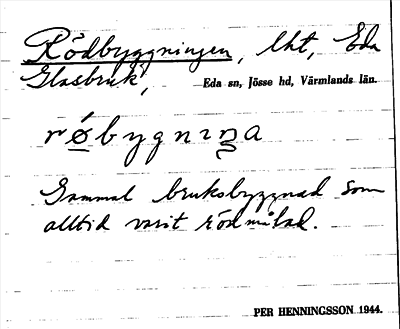 Rödbyggningen, lht, Eda
Glasbruk,
Eda sn, Jösse hd, Värmlands län.
røbygnıŋa
Gammal bruksbyggnad som
alltid varit rödmålad.
PER HENNINGSSON 1944.